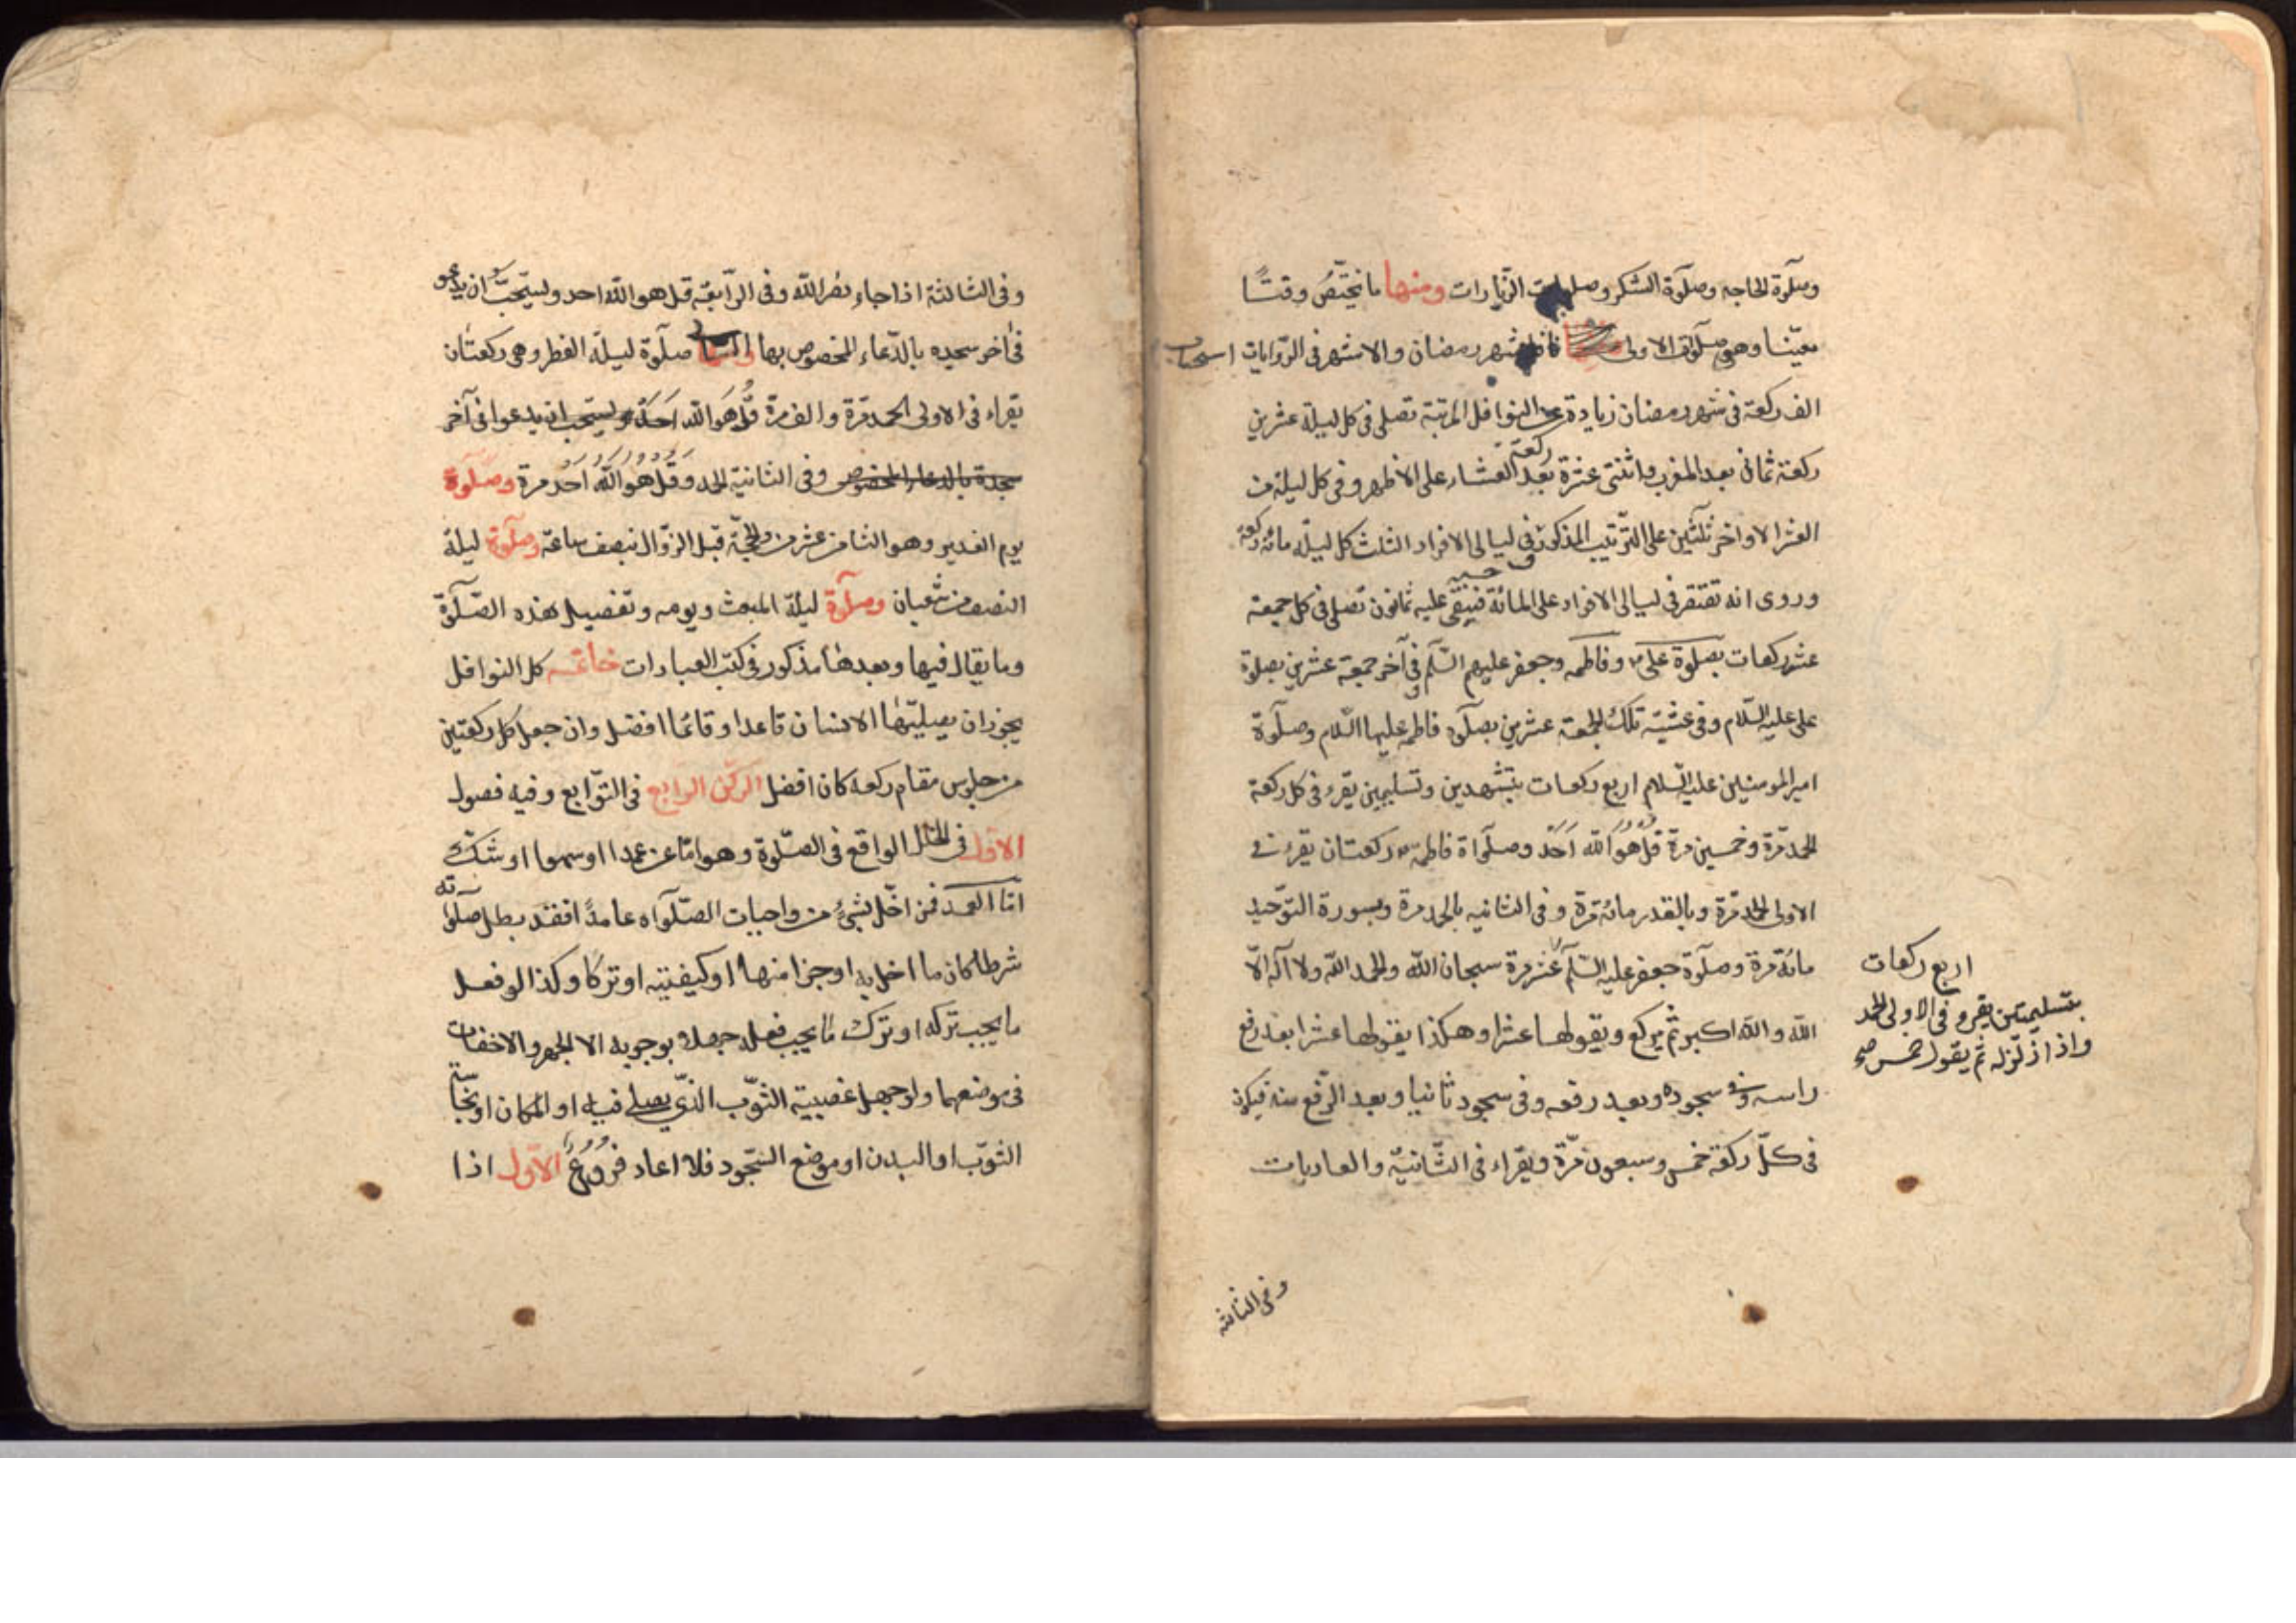 وصلوة الحاجه وصلوة الشكر وصلوات الزيارات ومنها ما يختص وقتا
معينا وهي صلوات الاولى نافلة شهر رمضان والاشهر فى الروايات استحباب
الف ركعة فى شهر رمضان زيادة على النوافل المرتبة تصلى فى كل ليلة عشرين
ركعة ثمانى بعد المغرب واثنتى عشرة ركعة بعد العشاء على الاظهر وفى كل ليلة من
العشر الاواخر ثلثين على الترتيب المذكور وفى ليالى الافراد الثلث كل ليلة مائة ركعة
وروى انه تقتصر فى ليالى الافراد على المائة حسب فيبقى عليه ثمانون تصلى فى كل جمعة
عشر ركعات بصلوة على وفاطمه وجعفر عليهم السلم وفى آخر جمعة عشرين بصلوة
على عليه السلام وفى عشية تلك الجمعة عشرين بصلوة فاطمه عليها السلام وصلوة
امير المومنين عليه السلام اربع ركعات بتشهدين وتسليمين يقرء فى كل ركعة
الحمد مرة وخمسين مرة قل هو الله احد وصلواة فاطمه ركعتان يقرء فى
الاولى الحمد مرة وبالقدر مائة مرة وفى الثانيه بالحمد مرة وبسورة التوحيد
مائة مرة وصلوة جعفر عليه السلم عشر مرة سبحان الله والحمد الله ولا اله الا
الله والله اكبر ثم يركع ويقولها عشرا وهكذا يقولها عشرا بعد رفع
راسه وفى سجوده وبعد رفعه وفى سجود ثانيا وبعد الرفع منه فيكون
فى كل ركعة خمس وسبعون مرة ويقراء فى الثانية والعاديات
اربع ركعات
بتسليمتين يقرء فى الاولى الحمد
واذا زلزله ثم يقول خمس
وفى الثالثه
وفى الثالثة اذا جاء نصر الله وفى الرابعة قل هو الله احد ويستحب ان يدعو
فى آخر سجده بالدعاء المخصوص بها صلوة ليلة الفطر وهى ركعتان
يقراء فى الاولى الحمد مرة والف مرة قل هو الله احد ويستحب ان يدعوا فى آخر
سجدة بالدعاء المخصوص وفى الثانية الحمد وقل هو الله احد مرة وصلوة
يوم الغدير وهو الثامن عشر من ذى الحجة قبل الزوال بنصف ساعة وصلوة ليلة
النصف من شعبان وصلوة ليلة المبعث ويومه وتفصيل هذه الصلوة
وما يقال فيها وبعدها مذكور فى كتب العبادات خاتمة كل النوافل
يجوز ان يصليها الانسان قاعدا وقائما افضل وان جعل كل ركعتين
من جلوس مقام ركعه كان افضل الركن الرابع فى التوابع وفيه فصول
الاول فى الخلل الواقع فى الصلوة وهو اما عن عمدا او سهوا او شك
اما العمد فمن اخل بشئ من واجبات الصلواه عامدا فقد بطل صلواته
شرطا كان ما اخل به او جزا منها او كيفيته او تركا وكذا لو فعل
ما يجب تركه او ترك ما يجب فعله جهلا بوجوبه الا الجهر والاخفات
فى موضعهما ولو جهل غصبية الثوب الذى يصلى فيه او المكان او نجاسة
الثوب او البدن او موضع السجود فلا اعاد فروع الاول اذا